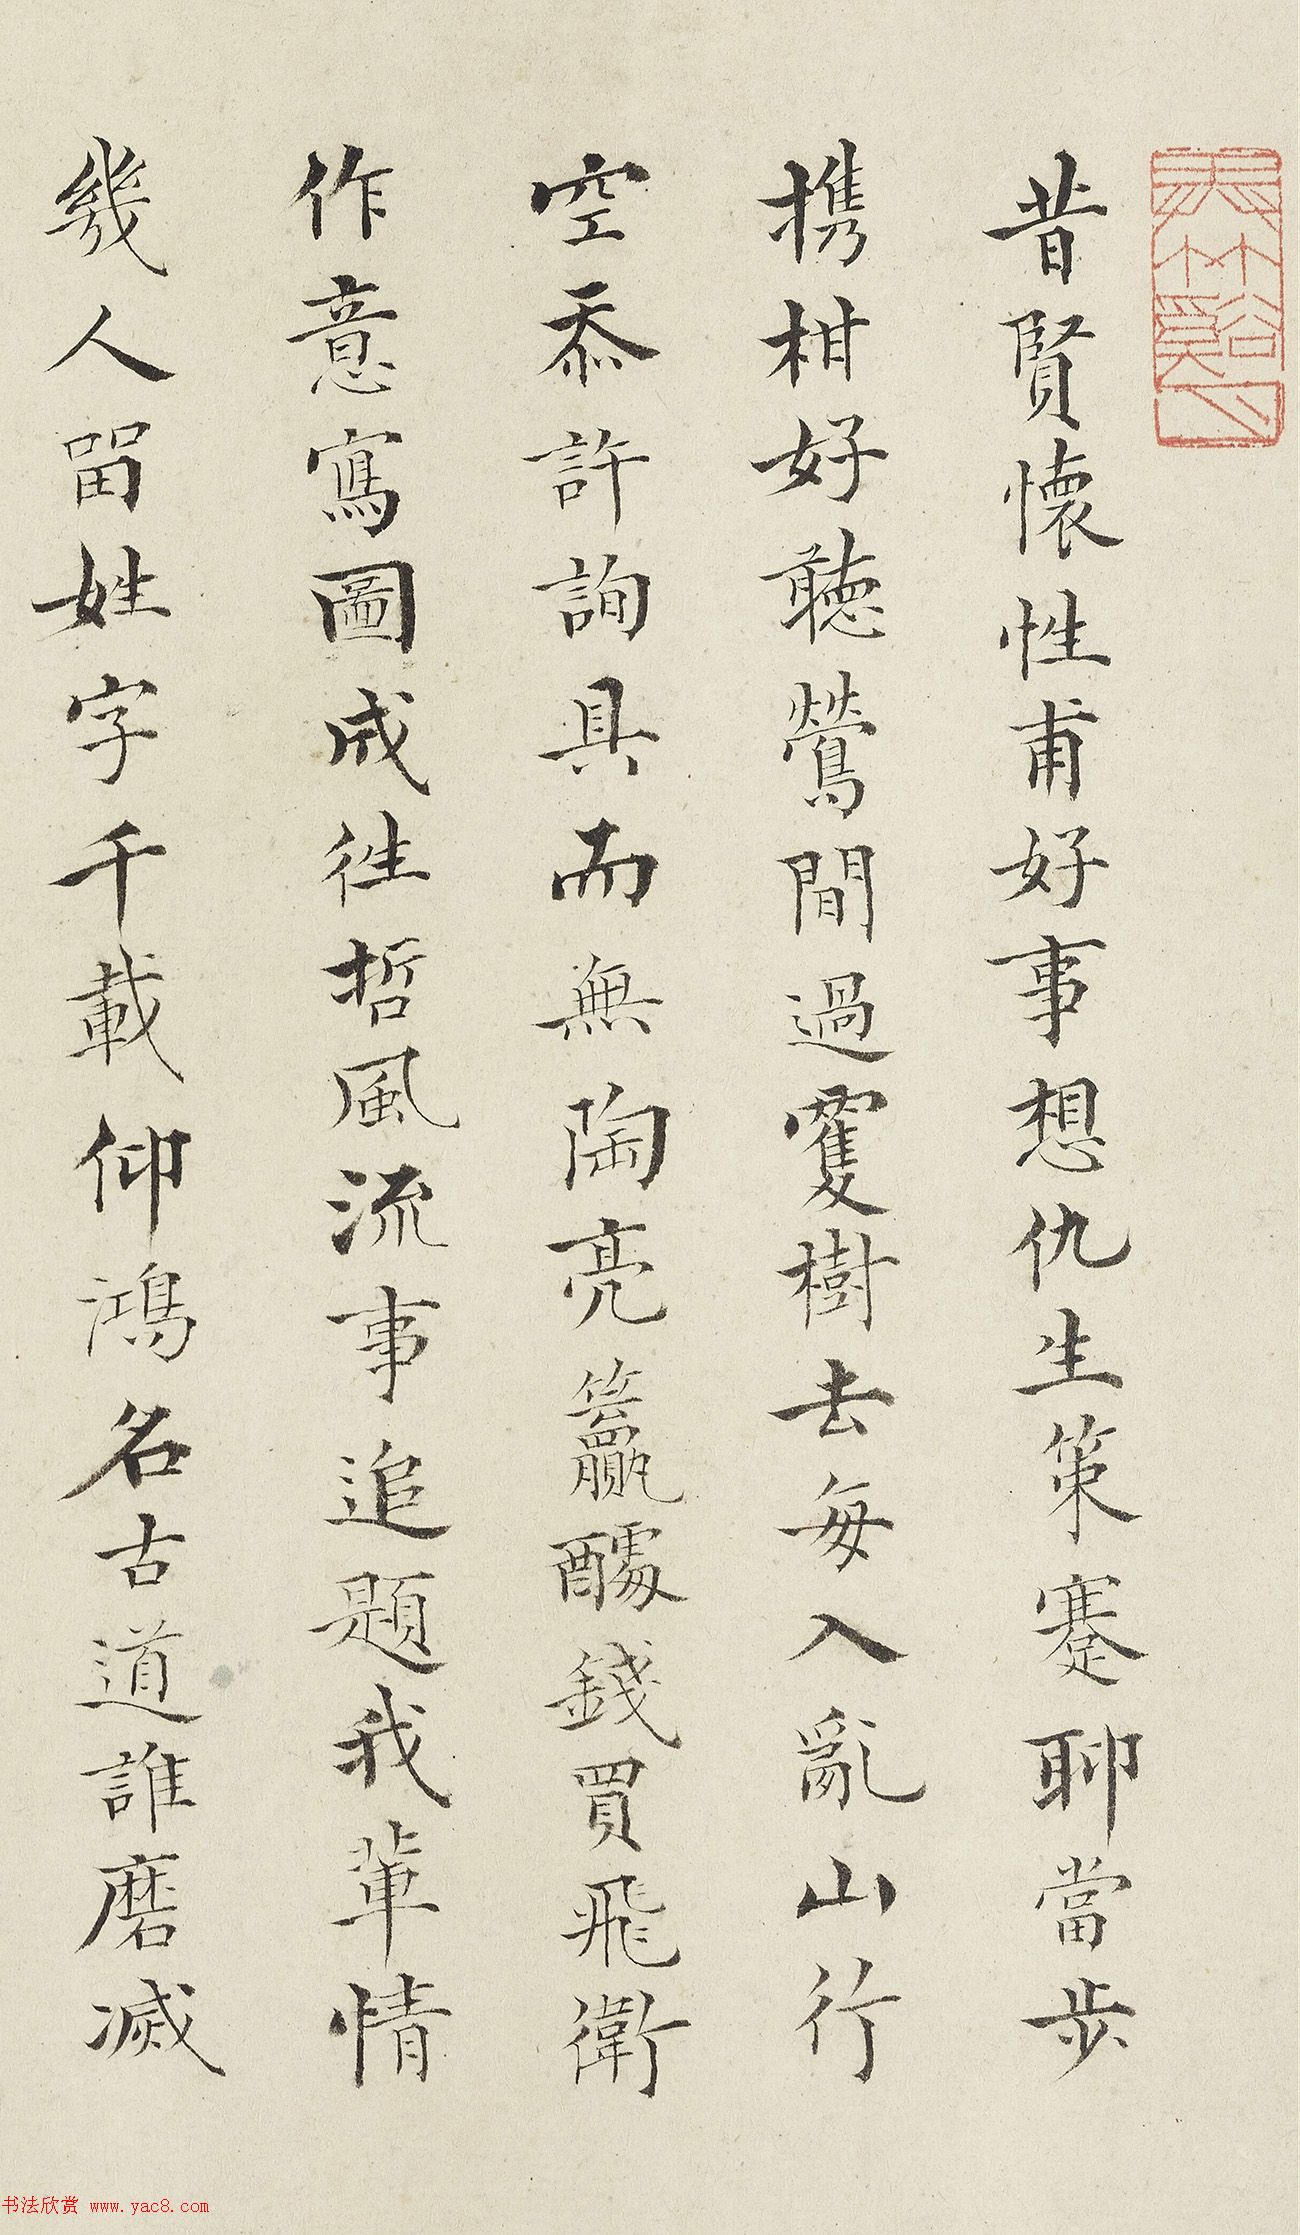 昔賢懷性甫好事想仇生策蹇聊當步
携柑好聽鶯間過雙樹去每入亂山行
空忝許詢具而無陶亮籝醵錢買飛衛
作意寫圖成往哲風流事追題我輩情
幾人留姓字千載仰鴻名古道誰磨滅
书法欣赏 www.yac8.com